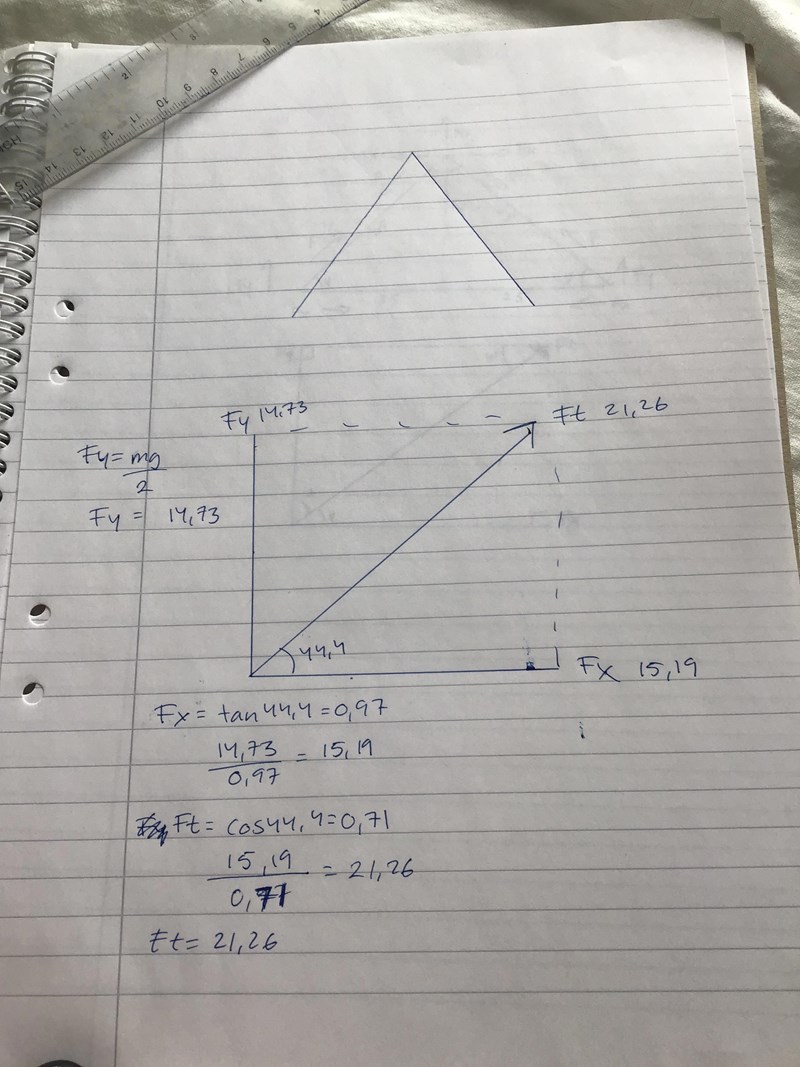 Fy 14,73
Ft 21,26
Fy = mg
2
Fy = 14,73
44,4
Fx 15,19
Fx = tan 44,4 = 0,97
14,73 = 15,19
0,97
Ft = cos 44,4 = 0,71
15,19 = 21,26
0,71
Ft = 21,26
4
5
6
7
8
9
10
11
12
13
14
15